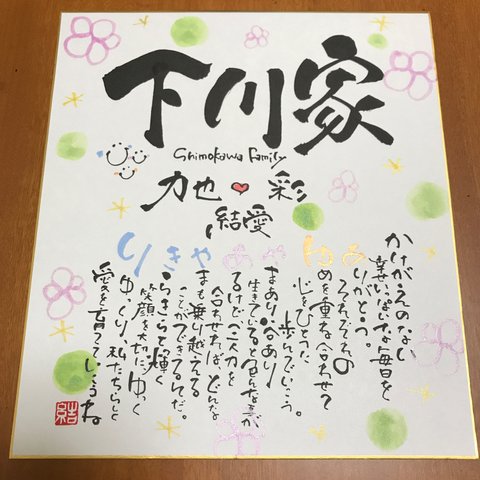 下川家
Shimokawa Family
力也 彩
結愛
りきや あや ゆあ
かけがえのない
幸せいっぱいな毎日を
ありがとう。
それぞれの
ゆめを重ね合わせて
心をひとつに
歩んでいこう。
やまあり谷あり
生きていると色んな事が
あるけど三人の力を
合わせれば、どんな
やまも乗り越える
ことができるんだ。
きらきらと輝く
笑顔を大切に、ゆっく
りゆっくり、私たちらしく
愛を育てていこうね
結